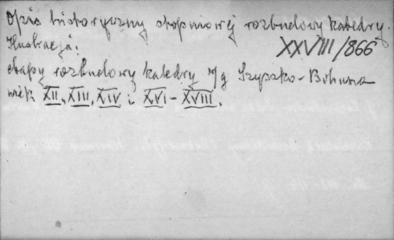 Opis historyczny stopniowej rozbudowy katedry.
Ilustracja: XXVIII/866
etapy rozbudowy katedry w/g Szyszko-Bohusza
wiek XII, XIII, XIV i XVI-XVIII.